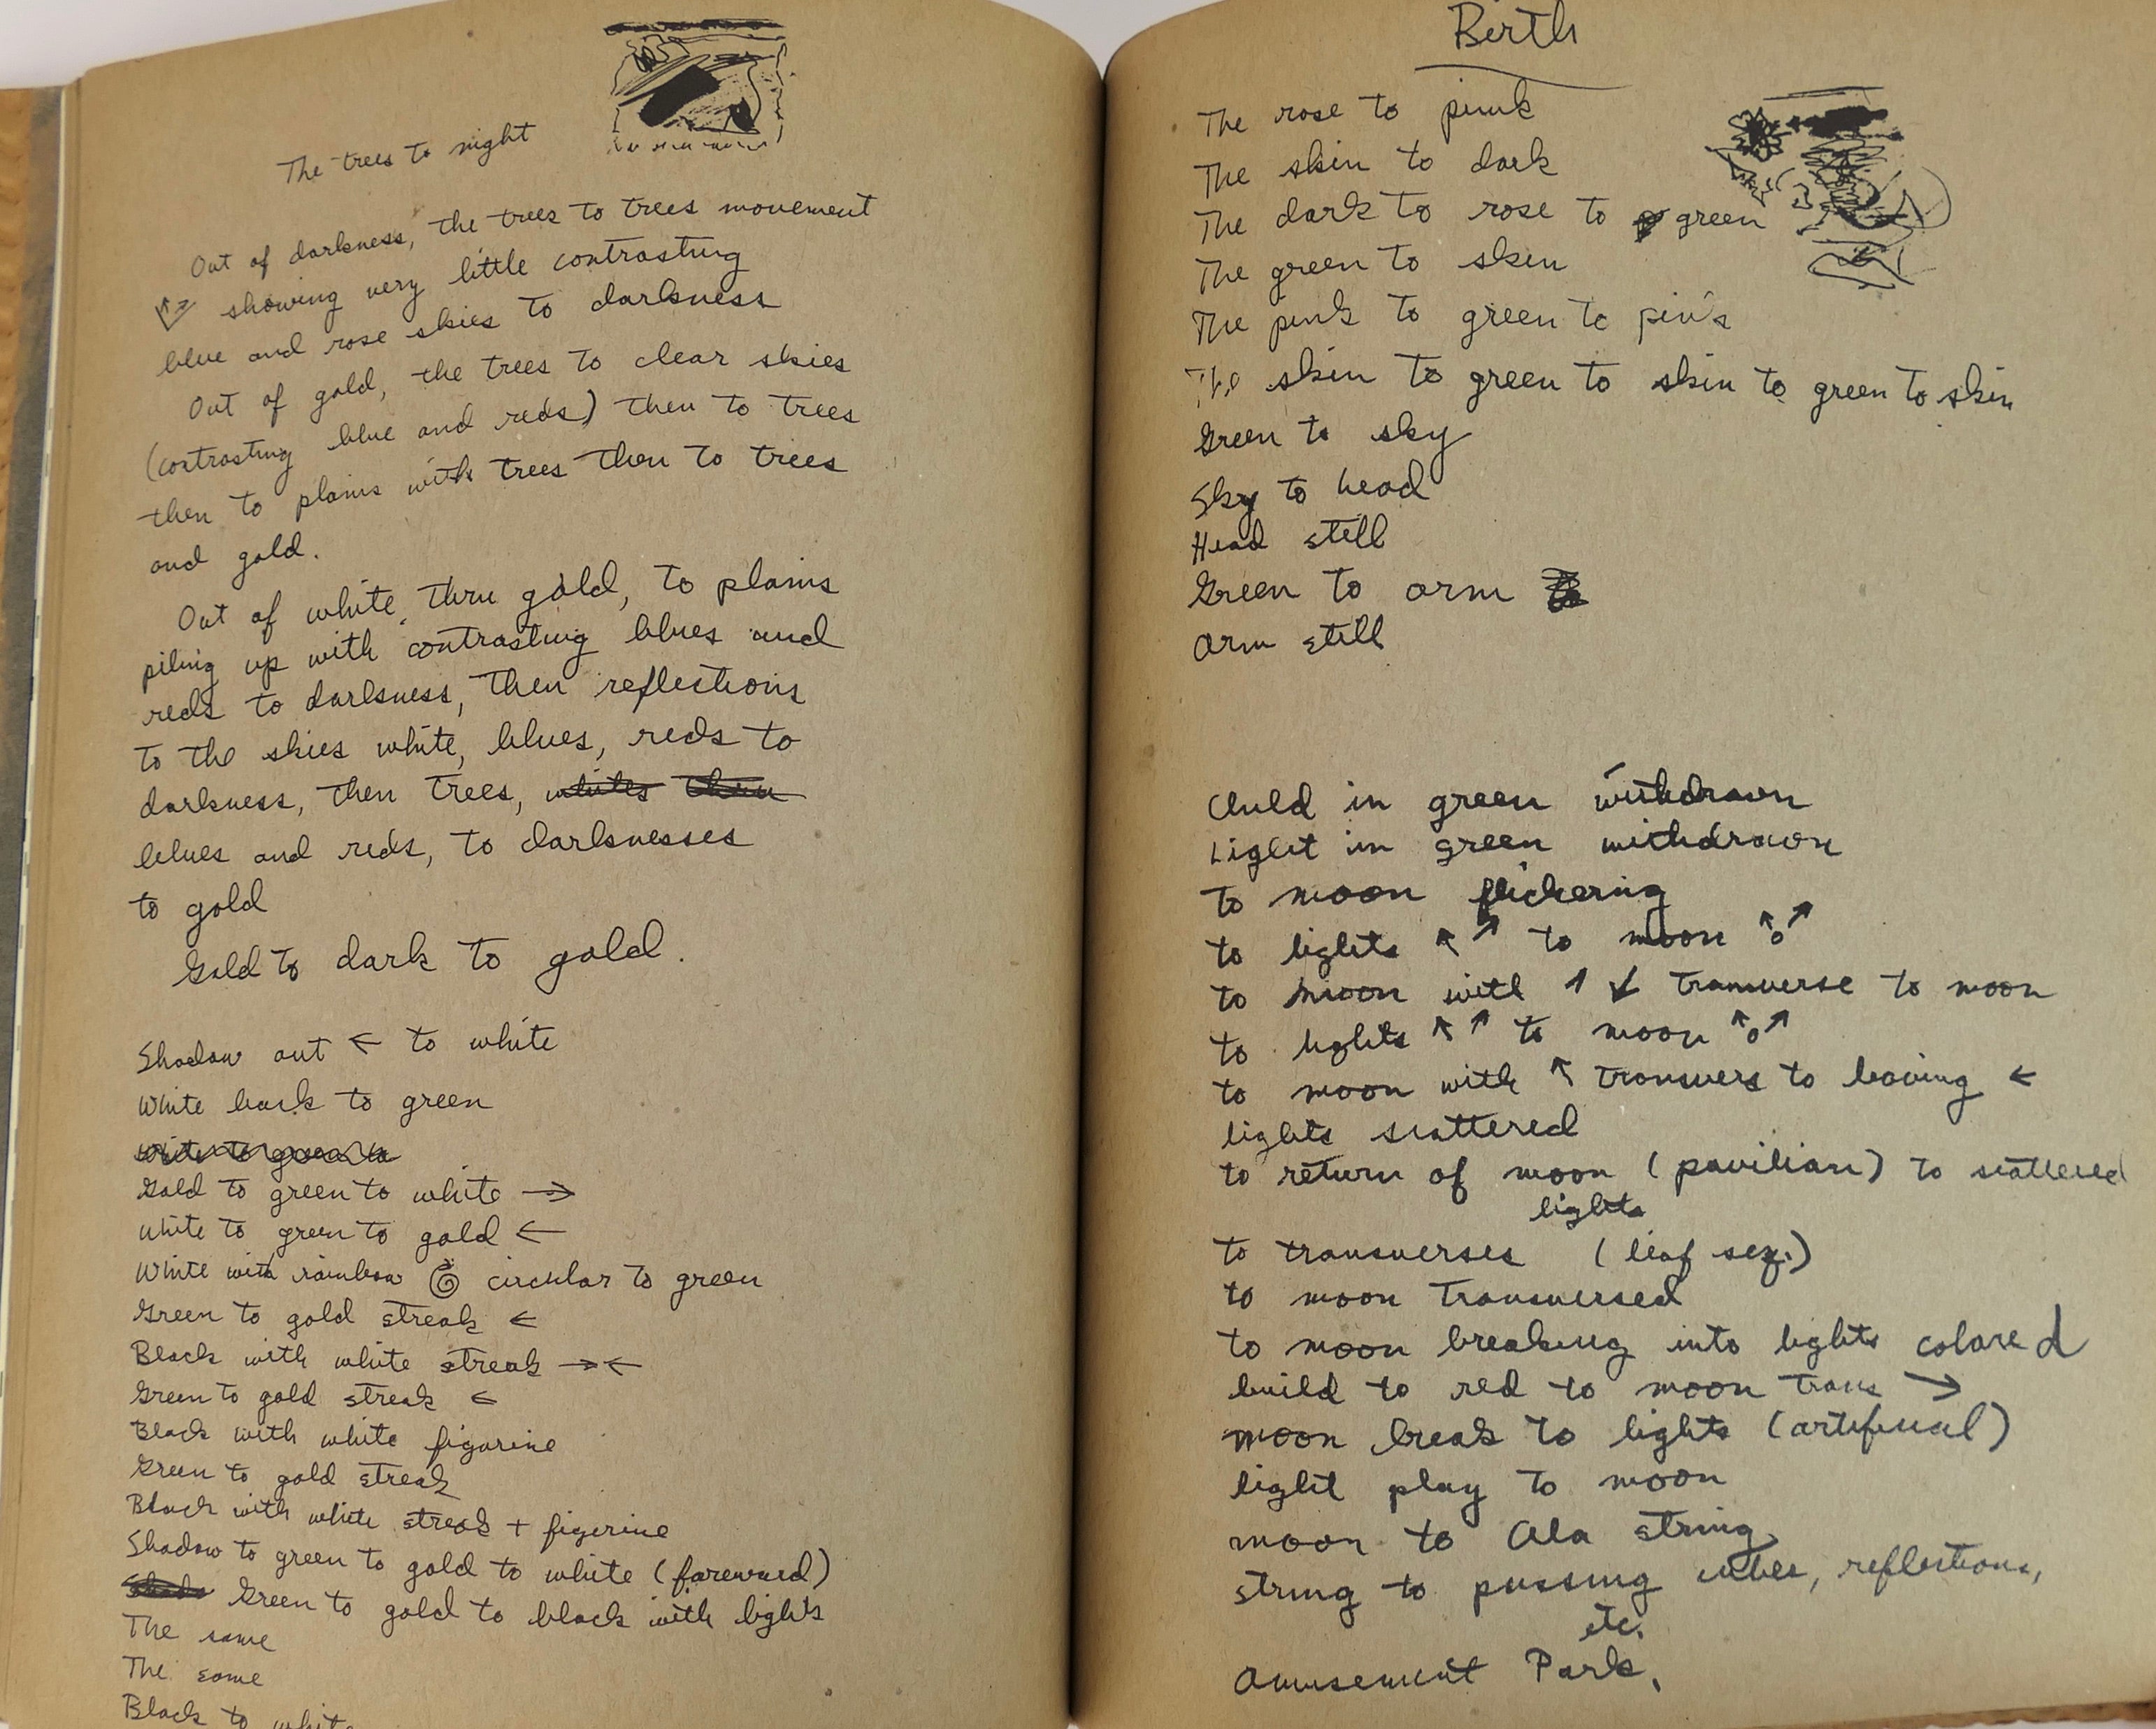 The trees to night
Out of darkness, the trees to trees movement
showing very little contrasting
blue and rose skies to darkness
Out of gold, the trees to clear skies
(contrasting blue and reds) then to trees
then to plains with trees then to trees
and gold.
Out of white, thru gold, to plains
piling up with contrasting blues and
reds to darkness, then reflections
to the skies white, blues, reds to
darkness, then trees, whites thru
blues and reds, to darknesses
to gold
Gold to dark to gold.
Shadow out ← to white
White back to green
White to green to
Gold to green to white →
White to green to gold ←
White with rainbow circular to green
Green to gold streak ←
Black with white streak →←
Green to gold streak ←
Black with white figurine
Green to gold streak
Black with white streak + figerine
Shadow to green to gold to white (foreward)
Green to gold to black with lights
The same
The same
Black to white
Birth
The rose to pink
The skin to dark
The dark to rose to green
The green to skin
The pink to green to pink
The skin to green to skin to green to skin
Green to sky
Sky to head
Head still
Green to arm
Arm still
Child in green withdrawn
Light in green withdrawn
to moon flickering
to lights ↖ ↗ to moon ↖o↗
to moon with ↑ ↓ transverse to moon
to lights ↖ ↗ to moon ↖o↗
to moon with ↖ transvers to leaving ←
lights scattered
to return of moon (pavilian) to scattered
lights
to transverses (leaf seq.)
to moon transversed
to moon breaking into lights colored
build to red to moon trans →
moon break to lights (artificial)
light play to moon
moon to Ala string
string to passing cubes, reflections,
etc.
Amusement Park.